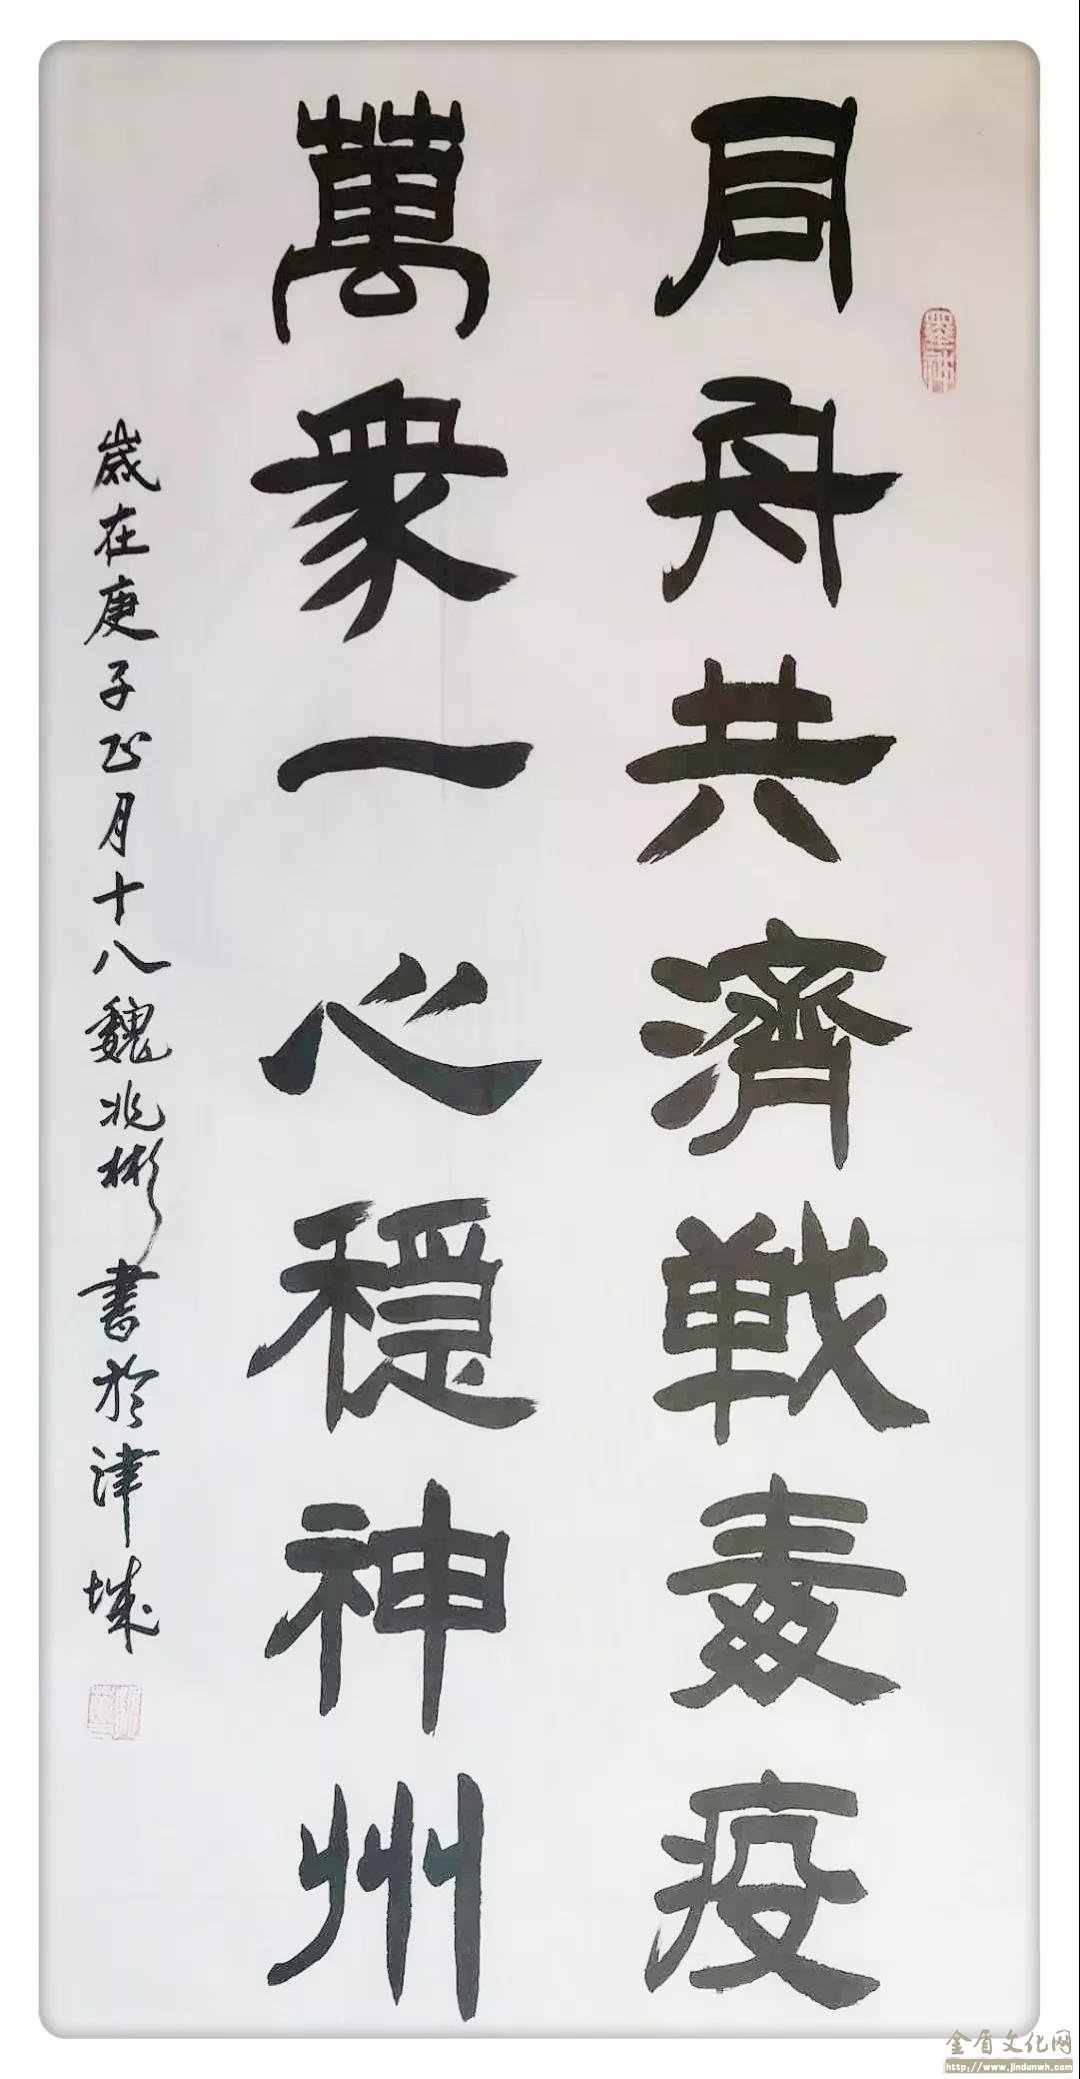 同舟共濟戦毒疫
萬衆一心穩神州
歲在庚子正月十八魏兆彬書於津城
墨神
金盾文化网
http://www.jindunwh.com